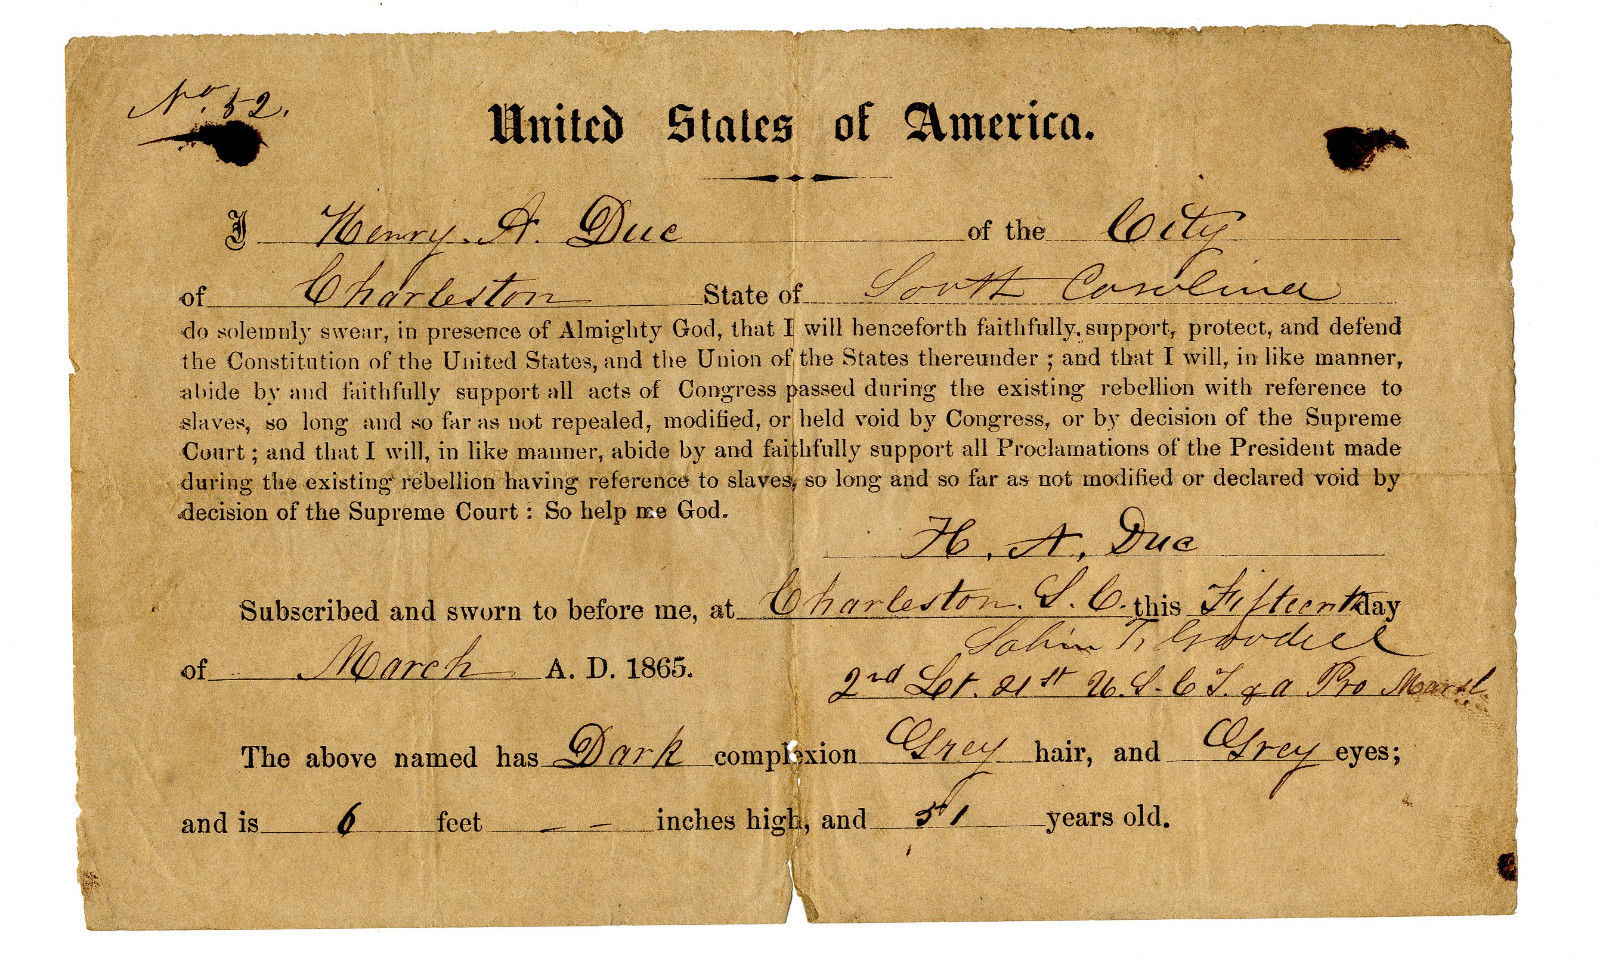 No. 52.
United States of America.
I Henry. A. Duc of the City
of Charleston State of South Carolina
do solemnly swear, in presence of Almighty God, that I will henceforth faithfully support, protect, and defend
the Constitution of the United States, and the Union of the States thereunder ; and that I will, in like manner,
abide by and faithfully support all acts of Congress passed during the existing rebellion with reference to
slaves, so long and so far as not repealed, modified, or held void by Congress, or by decision of the Supreme
Court ; and that I will, in like manner, abide by and faithfully support all Proclamations of the President made
during the existing rebellion having reference to slaves, so long and so far as not modified or declared void by
decision of the Supreme Court : So help me God.
H. A. Duc
Subscribed and sworn to before me, at Charleston. S. C. this Fifteenth day
Goodell
of March A. D. 1865.
2nd Lt. 21st U. S. C T. & a Pro Marsl
The above named has Dark complexion Grey hair, and Grey eyes;
and is 6 feet - - inches high, and 51 years old.